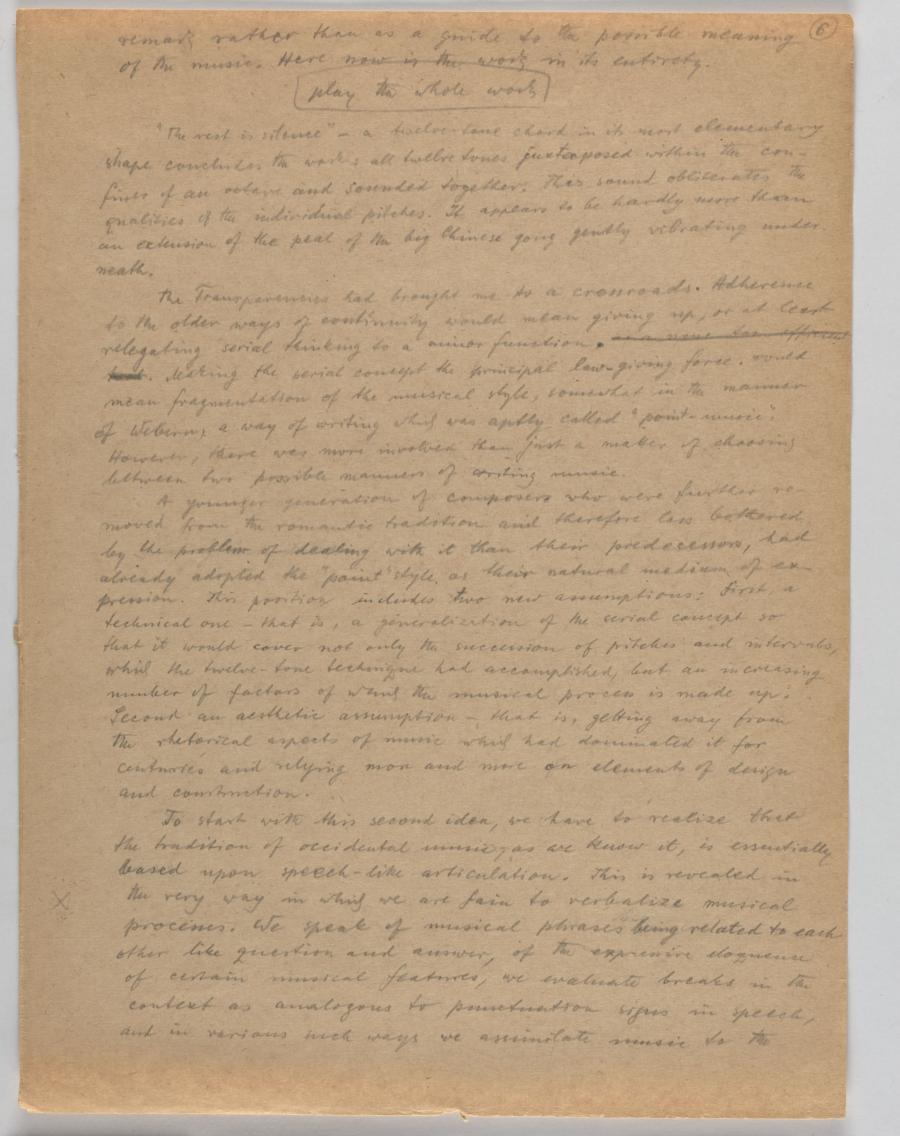 6
remark rather than as a guide to the possible meaning
of the music. Here now is the work in its entirety.
play the whole work
"The rest is silence" – a twelve-tone chord in its most elementary
shape concludes the work: all twelve tones juxtaposed within the con-
fines of an octave and sounded together. This sound obliterates the
qualities of the individual pitches. It appears to be hardly more than
an extension of the peal of the big Chinese gong gently vibrating under
neath.
The Transparencies had brought me to a crossroads. Adherence
to the older ways of continuity would mean giving up, or at least
relegating serial thinking to a minor function.
Making the serial concept the principal law-giving force would
mean fragmentation of the musical style, somewhat in the manner
of Webern, a way of writing which was aptly called "point-music".
However, there was more involved than just a matter of choosing
between two possible manners of writing music.
A younger generation of composers who were further re
moved from the romantic tradition and therefore less bothered
by the problem of dealing with it than their predecessors, had
already adopted the "point" style as their natural medium of ex-
pression. This position includes two new assumptions: First, a
technical one – that is, a generalization of the serial concept so
that it would cover not only the succession of pitches and intervals,
which the twelve-tone technique had accomplished, but an increasing
number of factors of which the musical process is made up;
Second an aesthetic assumption – that is, getting away from
the rhetorical aspects of music which had dominated it for
centuries and relying more and more on elements of design
and construction.
To start with this second idea, we have to realize that
the tradition of occidental music, as we know it, is essentially
based upon speech-like articulation. This is revealed in
X the very way in which we are fain to verbalize musical
processes. We speak of musical phrases being related to each
other like question and answer, of the expressive eloquence
of certain musical features, we evaluate breaks in the
context as analogous to punctuation signs in speech,
and in various such ways we assimilate music to the